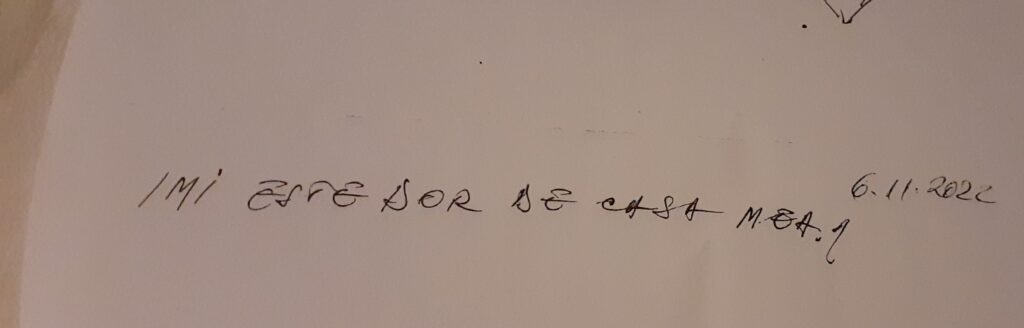 IMI ESTE DOR DE CASA MEA.
6.11.2022